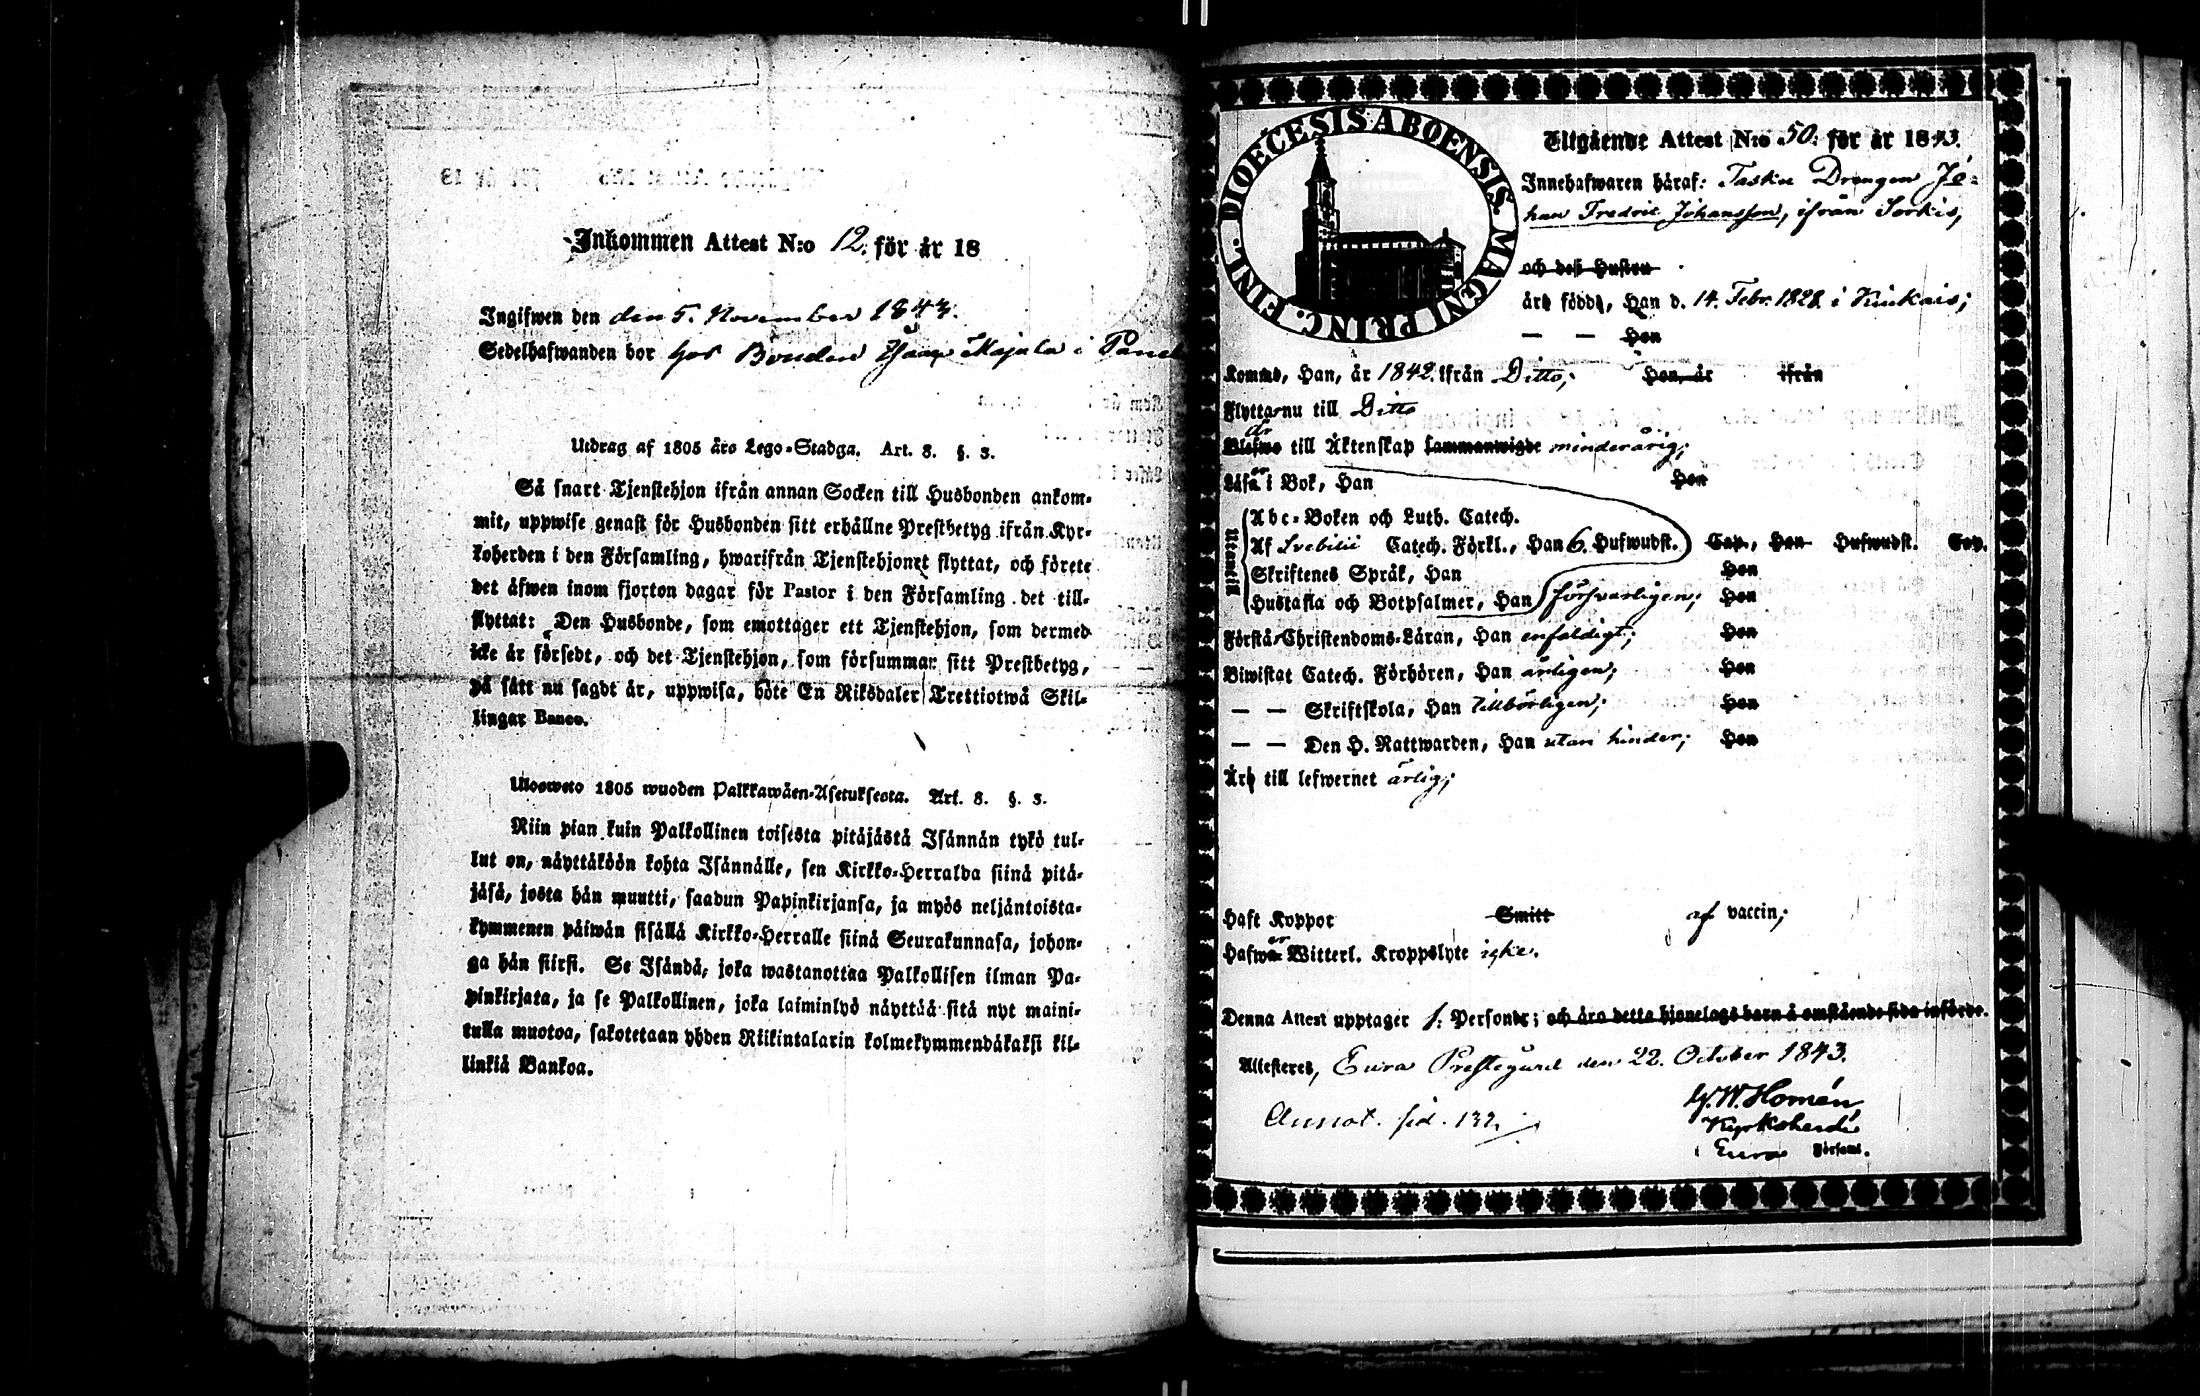 Inkommen Attest N:o 12. för år 18
Ingifwen den den 5. November 1843.
Sedelhafwanden bor hos Bonden Isaac Majala i Panel
Utdrag af 1805 års Lego-Stadga. Art. 8. §. 3.
Så snart Tjenstehjon ifrån annan Socken till Husbonden ankom-
mit, uppwise genast för Husbonden sitt erhållne Prestbetyg ifrån Kyr-
koherden i den Församling, hwarifrån Tjenstehjonet flyttat, och förete
det äfwen inom fjorton dagar för Pastor i den Församling det till-
flyttat: Den Husbonde, som emottager ett Tjenstehjon, som dermed
icke är försedt, och det Tjenstehjon, som försummar sitt Prestbetyg,
på sätt nu sagdt är, uppwisa, böte En Riksdaler Trettiotwå Skil-
lingar Banco.
Ulosweto 1805 wuoden Palkkawäen-Asetuksesta. Art. 8. §. 3.
Niin pian kuin Palkollinen toisesta pitäjästä Isännän tykö tul-
lut on, näyttäköön kohta Isännälle, sen Kirkko-Herralda siinä pitä-
jäsä, josta hän muutti, saadun Papinkirjansa, ja myös neljäntoista-
kymmenen päiwän sisällä Kirkko-Herralle siinä Seurakunnasa, johon-
ga hän siirsi. Se Isändä, joka wastanottaa Palkollisen ilman Pa-
pinkirjata, ja se Palkollinen, joka laiminlyö näyttää sitä nyt maini-
tulla muotoa, sakotetaan yhden Riikintalarin kolmekymmendäkaksi kil-
linkiä Bankoa.
DIOECESIS ABOENSIS. MAGNI PRINC. FINL.
Utgående Attest N:o 50. för år 1843.
Innehafwaren häraf: Drengen Jo-
han Fredric Johansson, ifrån Sorkis,
och dess Hustru
äro födde, Han d. 14. Febr. 1828. i Kiukais;
— — Hon
Komne, Han, år 1842. ifrån Ditto; Hon, år ifrån
Flytta nu till Ditto
är
Blefwo till Äktenskap sammanwigde minderårig;
er
Läsa i Bok, Han Hon
Utantill
Abc-Boken och Luth. Catech.
Af Svebilii Catech. Förkl., Han 6. Hufwudst. Cap., Hon Hufwudst. Cap.
Skriftenes Språk, Han Hon
Hustafla och Botpsalmer, Han försvarligen; Hon
Förstå Christendoms-Läran, Han enfaldigt; Hon
Biwistat Catech. Förhören, Han årligen; Hon
— — Skriftskola, Han tillbörligen; Hon
— — Den H. Nattwarden, Han utan hinder; Hon
Äro till lefwernet ärlig;
Haft Koppor Smitt af vaccin;
er
Hafwa Witterl. Kroppslyte icke.
Denna Attest upptager 1. Personer; och äro detta hjonelags barn å omstående sida införde.
Attesteres, Eura Prestegård den 22. October 1843.
Annot. sid. 132.
W. Homén,
Kyrkoherde
i Eura Församl.